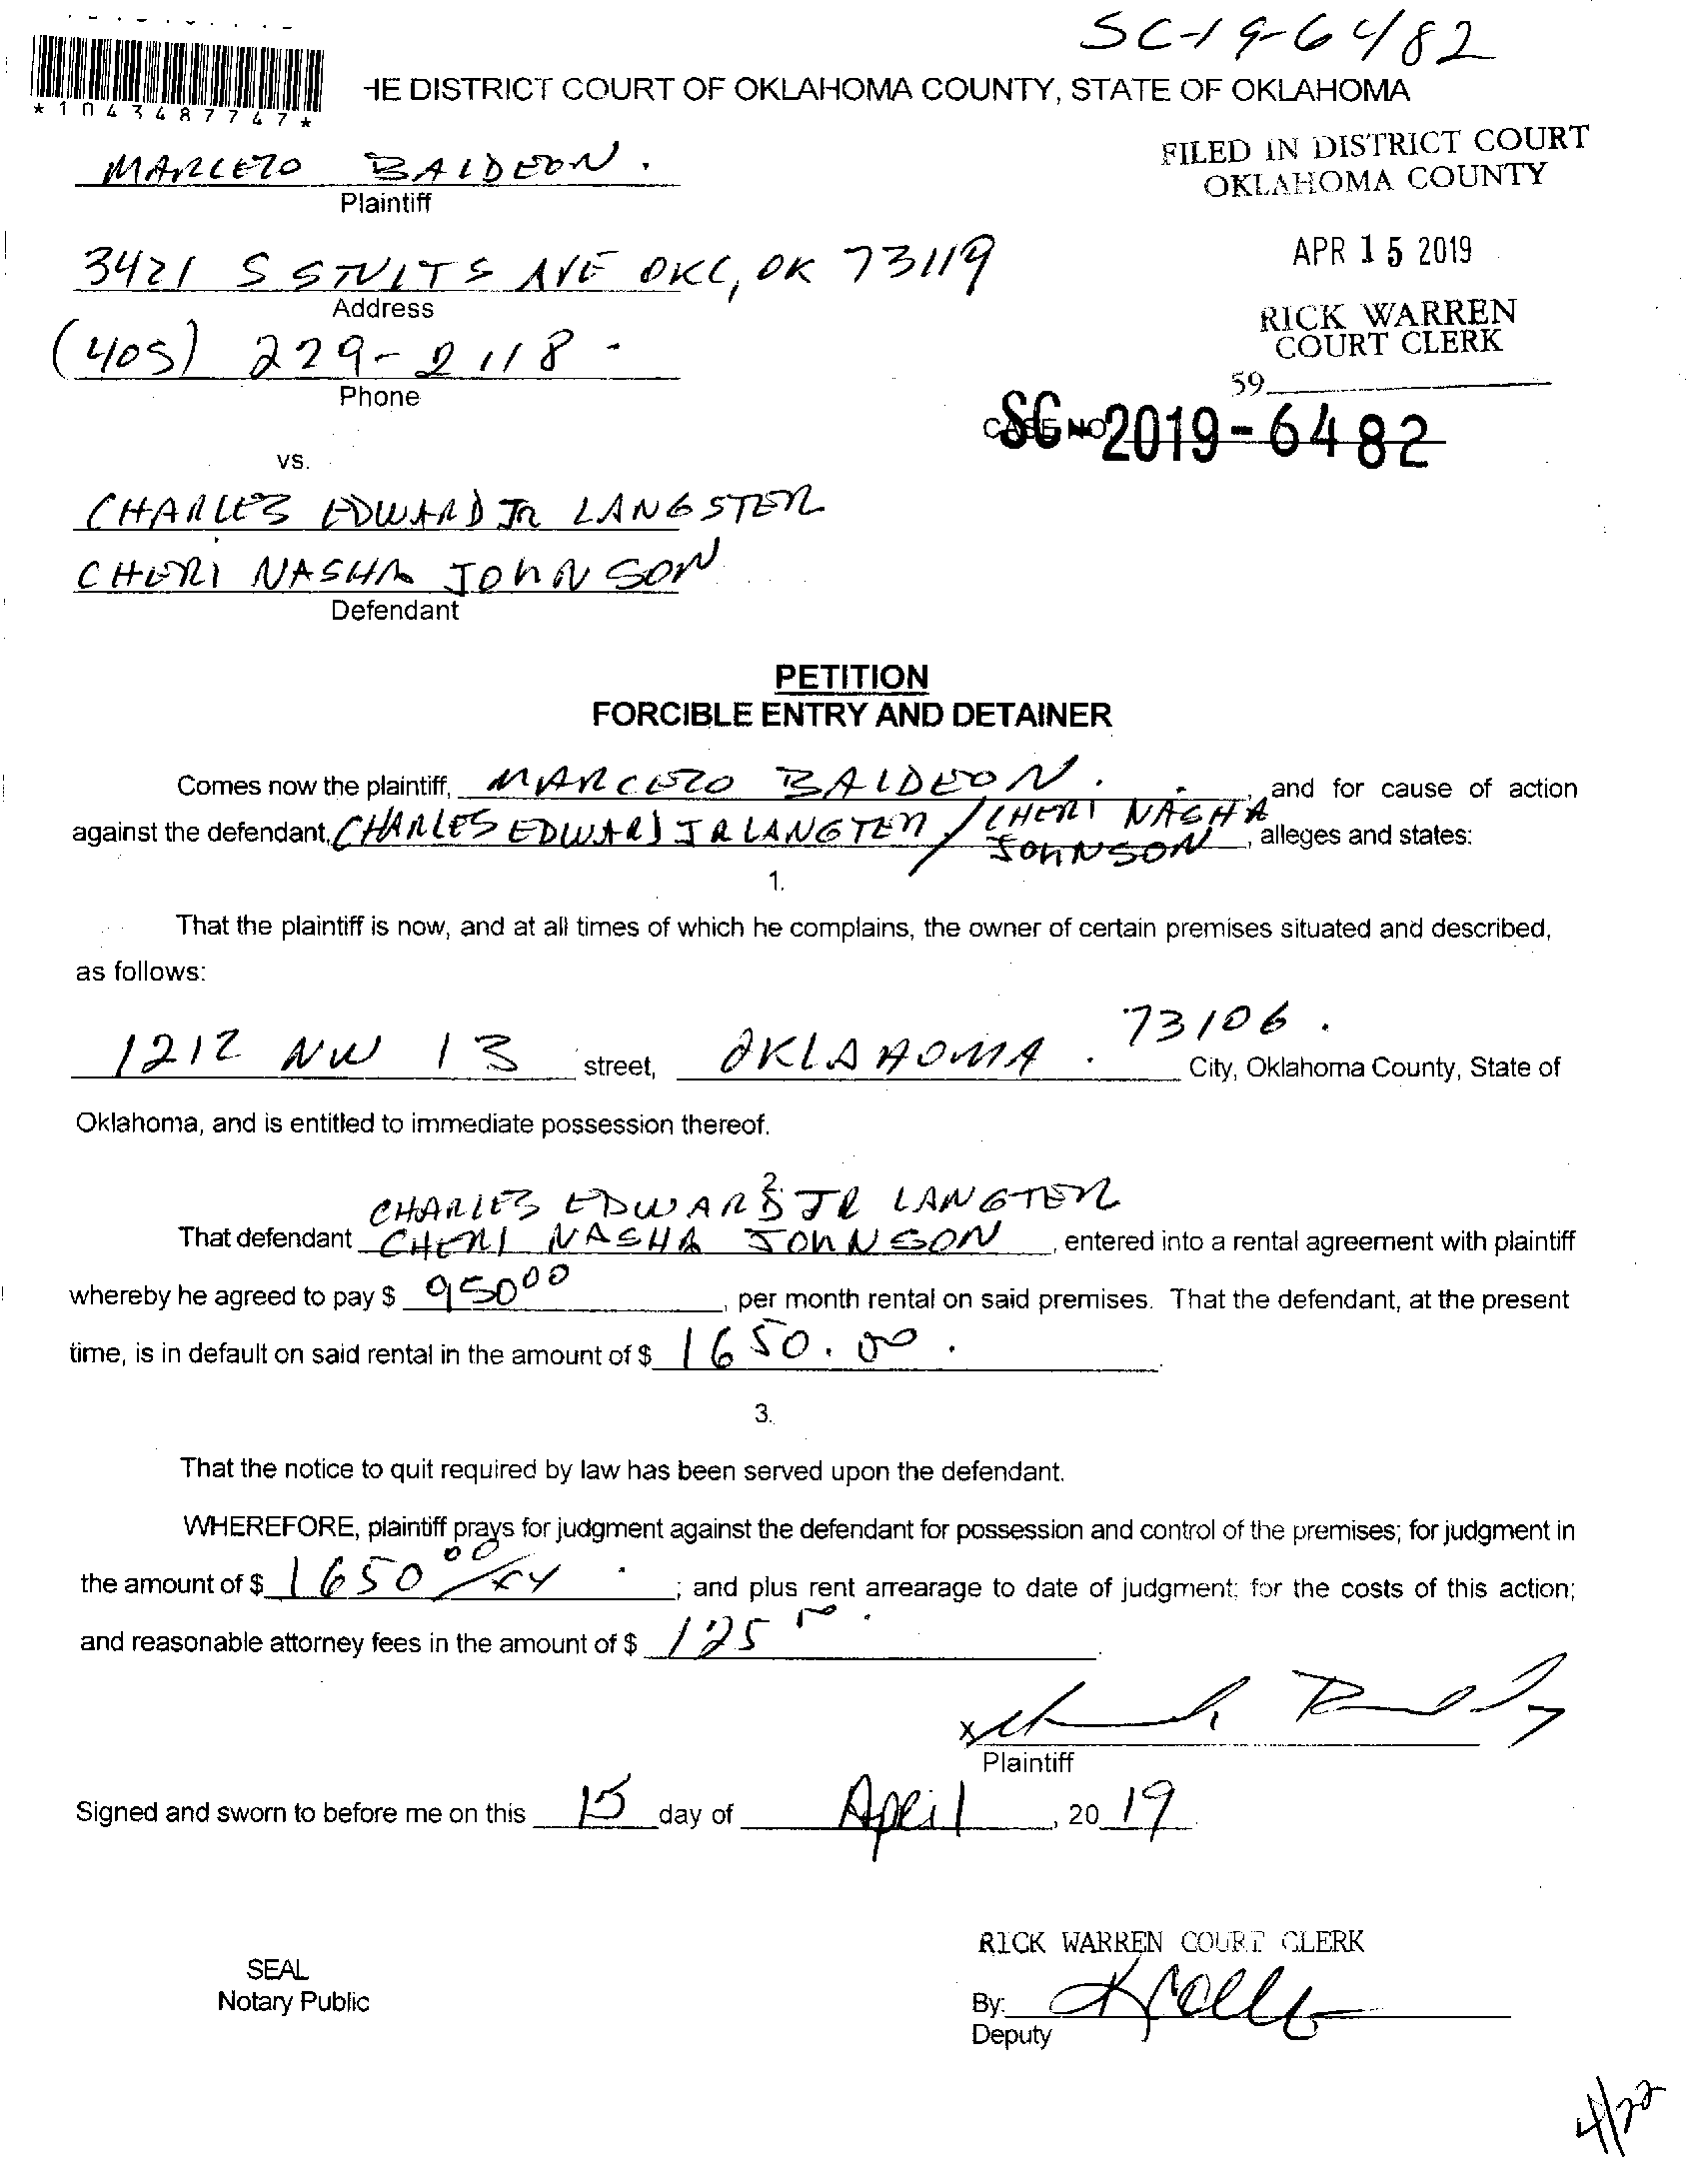 SC-19-6482
*1043487747*
HE DISTRICT COURT OF OKLAHOMA COUNTY, STATE OF OKLAHOMA
MARCELO BALDEON.
Plaintiff
FILED IN DISTRICT COURT
OKLAHOMA COUNTY
3421 S AVE OKC, OK 73119
Address
APR 15 2019
(405) 229-2118
Phone
RICK WARREN
COURT CLERK
59
CASE NO
SC-2019-6482
vs.
CHARLES EDWARD JR LANGSTER
CHERI NASHA JOHNSON
Defendant
PETITION
FORCIBLE ENTRY AND DETAINER
Comes now the plaintiff, MARCELO BALDEON. , and for cause of action
against the defendant, CHARLES EDWARD JR LANGTER / CHERI NASHA JOHNSON , alleges and states:
1.
That the plaintiff is now, and at all times of which he complains, the owner of certain premises situated and described,
as follows:
1212 NW 13 street, OKLAHOMA . 73106 . City, Oklahoma County, State of
Oklahoma, and is entitled to immediate possession thereof.
2.
CHARLES EDWARD JR LANGTER
That defendant CHERI NASHA JOHNSON , entered into a rental agreement with plaintiff
whereby he agreed to pay $ 950 00 , per month rental on said premises. That the defendant, at the present
time, is in default on said rental in the amount of $ 1650.00 .
3.
That the notice to quit required by law has been served upon the defendant.
WHEREFORE, plaintiff prays for judgment against the defendant for possession and control of the premises; for judgment in
the amount of $ 1650 00/xx ; and plus rent arrearage to date of judgment; for the costs of this action;
and reasonable attorney fees in the amount of $ 125 00 .
x
Plaintiff
Signed and sworn to before me on this 15 day of April , 20 19
RICK WARREN COURT CLERK
SEAL
Notary Public
By:
Deputy
4/22